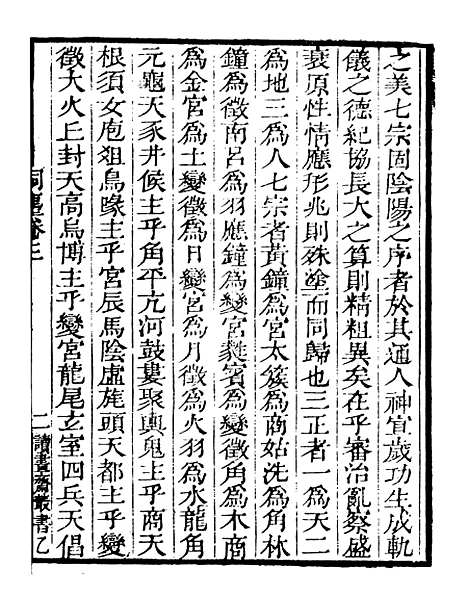 之美七宗固陰陽之序者於其通人神宣歲功生成軌
儀之德紀協長大之算則精粗異矣在乎審治亂察盛
衰原性情應形兆則殊塗而同歸也三正者一爲天二
爲地三爲人七宗者黃鐘爲宮太簇爲商姑洗爲角林
鐘爲徵南呂爲羽應鐘爲變宮蕤賓爲變徵角爲木商
爲金宮爲土變徵爲日變宮爲月徵爲火羽爲水龍角
元龜天豕井候主乎角平亢河鼓婁聚輿鬼主乎商天
根須女庖俎鳥喙主乎宮辰馬陰虛旄頭天都主乎變
徵大火丘封天高鳥博主乎變宮龍尾玄室四兵天倡
卷三
二
讀書齋叢書乙